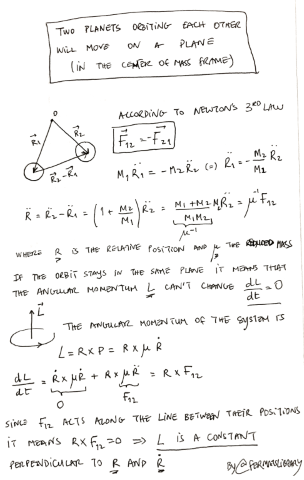 TWO PLANETS ORBITING EACH OTHER
WILL MOVE ON A PLANE
(IN THE CENTER OF MASS FRAME)
ACCORDING TO NEWTON'S 3RD LAW
0
R⃗₁ R⃗₂
R⃗₂-R⃗₁
F⃗₁₂ = -F⃗₂₁
M₁R̈₁ = -M₂R̈₂ (=) R̈₁ = -M₂/M₁ R̈₂
R̈ = R̈₂-R̈₁ = (1 + M₂/M₁) R̈₂ = (M₁+M₂)/(M₁M₂) M₂R̈₂ = μ⁻¹F₁₂
μ⁻¹
WHERE R IS THE RELATIVE POSITION AND μ THE REDUCED MASS
IF THE ORBIT STAYS IN THE SAME PLANE IT MEANS THAT
THE ANGULAR MOMENTUM L CAN'T CHANGE dL/dt = 0
L⃗
THE ANGULAR MOMENTUM OF THE SYSTEM IS
L = R×P = R×μṘ
dL/dt = Ṙ×μṘ + R×μR̈ = R×F₁₂
0 F₁₂
SINCE F₁₂ ACTS ALONG THE LINE BETWEEN THEIR POSITIONS
IT MEANS R×F₁₂=0 => L IS A CONSTANT
PERPENDICULAR TO R AND Ṙ
By/@FERMATSLIBRARY